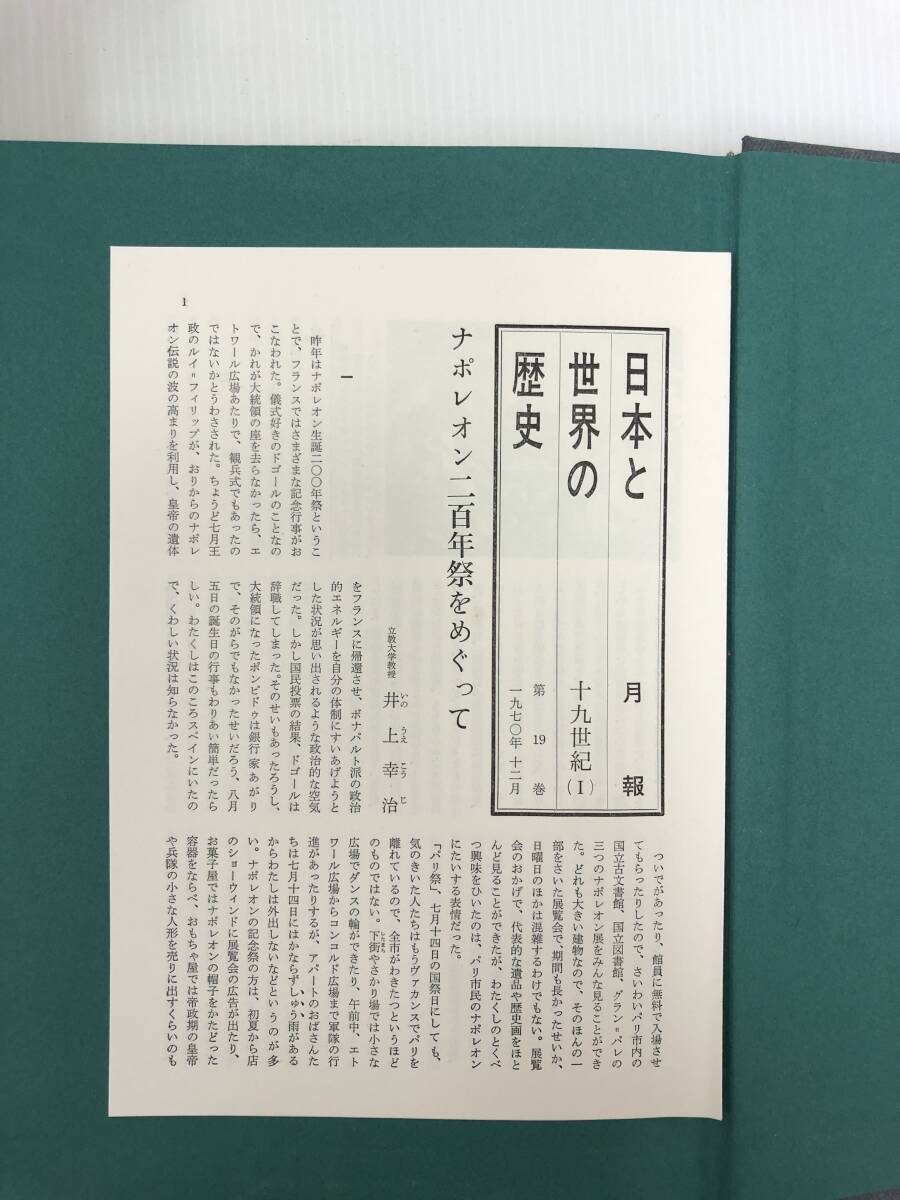 日本と
世界の
歴史
月報
十九世紀(Ⅰ)
第19巻
一九七〇年十二月
ナポレオン二百年祭をめぐって
立教大学教授
井上幸治
いのうえこうじ
一
昨年はナポレオン生誕二〇〇年祭というこ
とで、フランスではさまざまな記念行事がお
こなわれた。儀式好きのドゴールのことなの
で、かれが大統領の座を去らなかったら、エ
トワール広場あたりで、観兵式でもあったの
ではないかとうわさされた。ちょうど七月王
政のルイ゠フィリップが、おりからのナポレ
オン伝説の波の高まりを利用し、皇帝の遺体
をフランスに帰還させ、ボナパルト派の政治
的エネルギーを自分の体制にすいあげようと
した状況が思い出されるような政治的な空気
だった。しかし国民投票の結果、ドゴールは
辞職してしまった。そのせいもあったろうし、
大統領になったポンピドゥは銀行家あがり
で、そのがらでもなかったせいだろう、八月
五日の誕生日の行事もわりあい簡単だったら
しい。わたくしはこのころスペインにいたの
で、くわしい状況は知らなかった。
ついでがあったり、館員に無料で入場させ
てもらったりしたので、さいわいパリ市内の
国立古文書館、国立図書館、グラン゠パレの
三つのナポレオン展をみんな見ることができ
た。どれも大きい建物なので、そのほんの一
部をさいた展覧会で、期間も長かったせいか、
日曜日のほかは混雑するわけでもない。展覧
会のおかげで、代表的な遺品や歴史画をほと
んど見ることができたが、わたくしのとくべ
つ興味をひいたのは、パリ市民のナポレオン
にたいする表情だった。
「パリ祭」、七月十四日の国祭日にしても、
気のきいた人たちはもうヴァカンスでパリを
離れているので、全市がわきたつというほど
のものではない。下街やさかり場では小さな
したまち
広場でダンスの輪ができたり、午前中、エト
ワール広場からコンコルド広場まで軍隊の行
進があったりするが、アパートのおばさんた
ちは七月十四日にはかならずしゅう雨がある
からわたしは外出しないなどというのが多
い。ナポレオンの記念祭の方は、初夏から店
のショーウィンドに展覧会の広告が出たり、
お菓子屋ではナポレオンの帽子をかたどった
容器をならべ、おもちゃ屋では帝政期の皇帝
や兵隊の小さな人形を売りに出すくらいのも
1